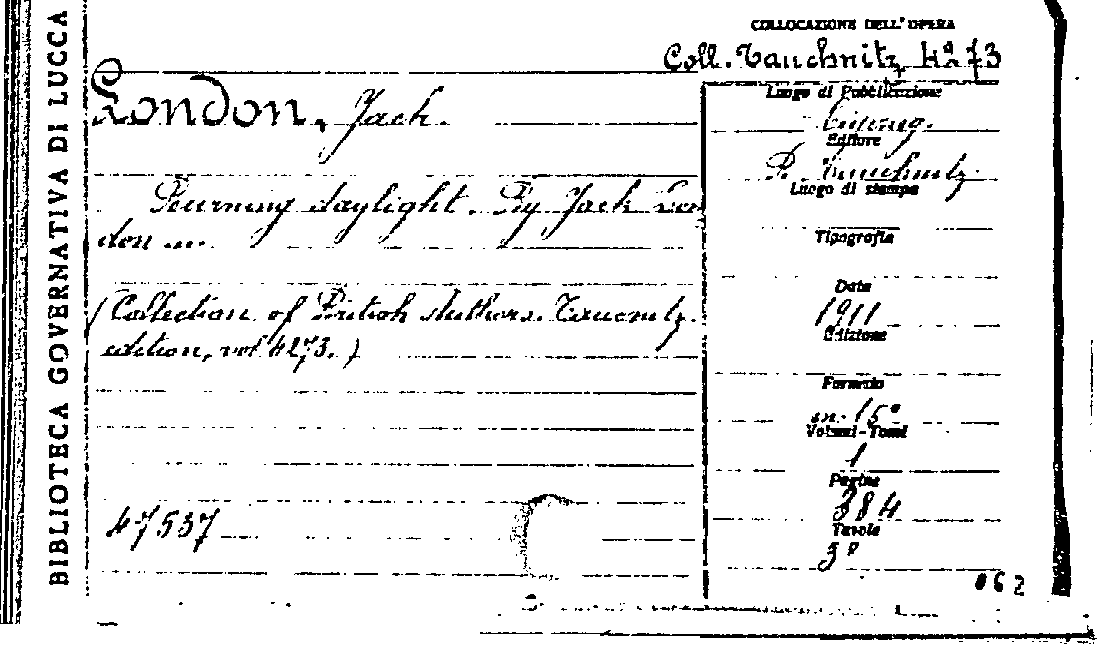 BIBLIOTECA GOVERNATIVA DI LUCCA
COLLOCAZIONE DELL'OPERA
Coll. Tauchnitz 4273
London, Jack.
Burning daylight. By Jack Lon
don ...
(Collection of British Authors. Taucnitz.
edition, vol 4273.)
47537
Luogo di Pubblicazione
Editore
B. Tauchnitz.
Luogo di stampa
Tipografia
Data
1911
Edizione
Formato
in-15°
Volumi-Tomi
1
Pagine
384
Tavole
062